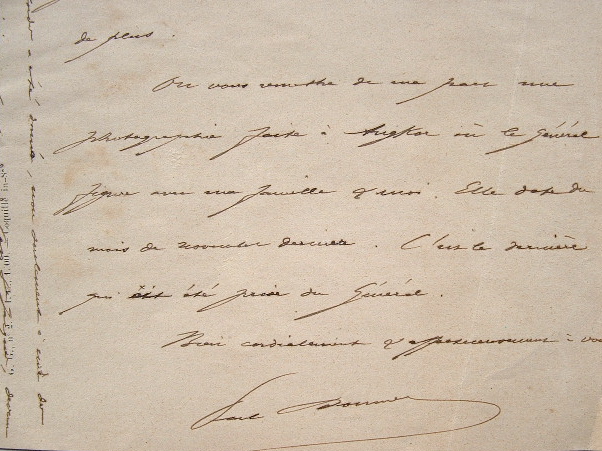 de plus.
On vous remettra de ma part une
photographie faite à Angkor où le Général
figure avec ma famille & moi. Elle date du
mois de novembre dernier. C'est la dernière
qui ait été prise du Général.
Bien cordialement & affectueusement à vous
Paul Doumer